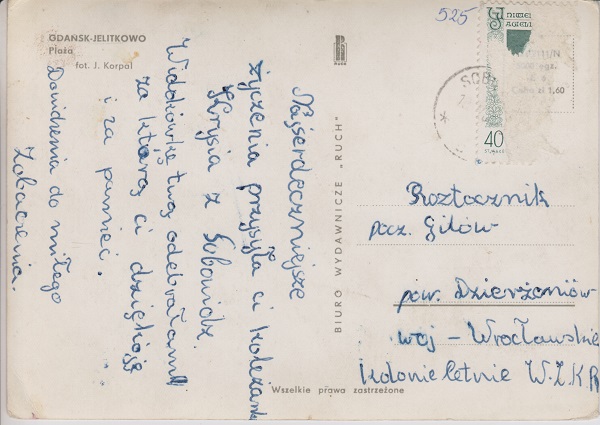 525
GDAŃSK-JELITKOWO
Plaża
fot. J. Korpal
RUCH
40
Cena zł 1,60
BIURO WYDAWNICZE „RUCH"
Najserdeczniejsze
życzenia przysyła ci koleżanka
Krysia z
Widokówkę twą odebrałam
za którą ci dziękuję
i za pamięć.
Dowidzenia do miłego
Zobaczenia.
Roztocznik
pocz. Gilów
pow. Dzierżoniów
woj - Wrocławskie
kolonie letnie W.Z.K.R
Wszelkie prawa zastrzeżone